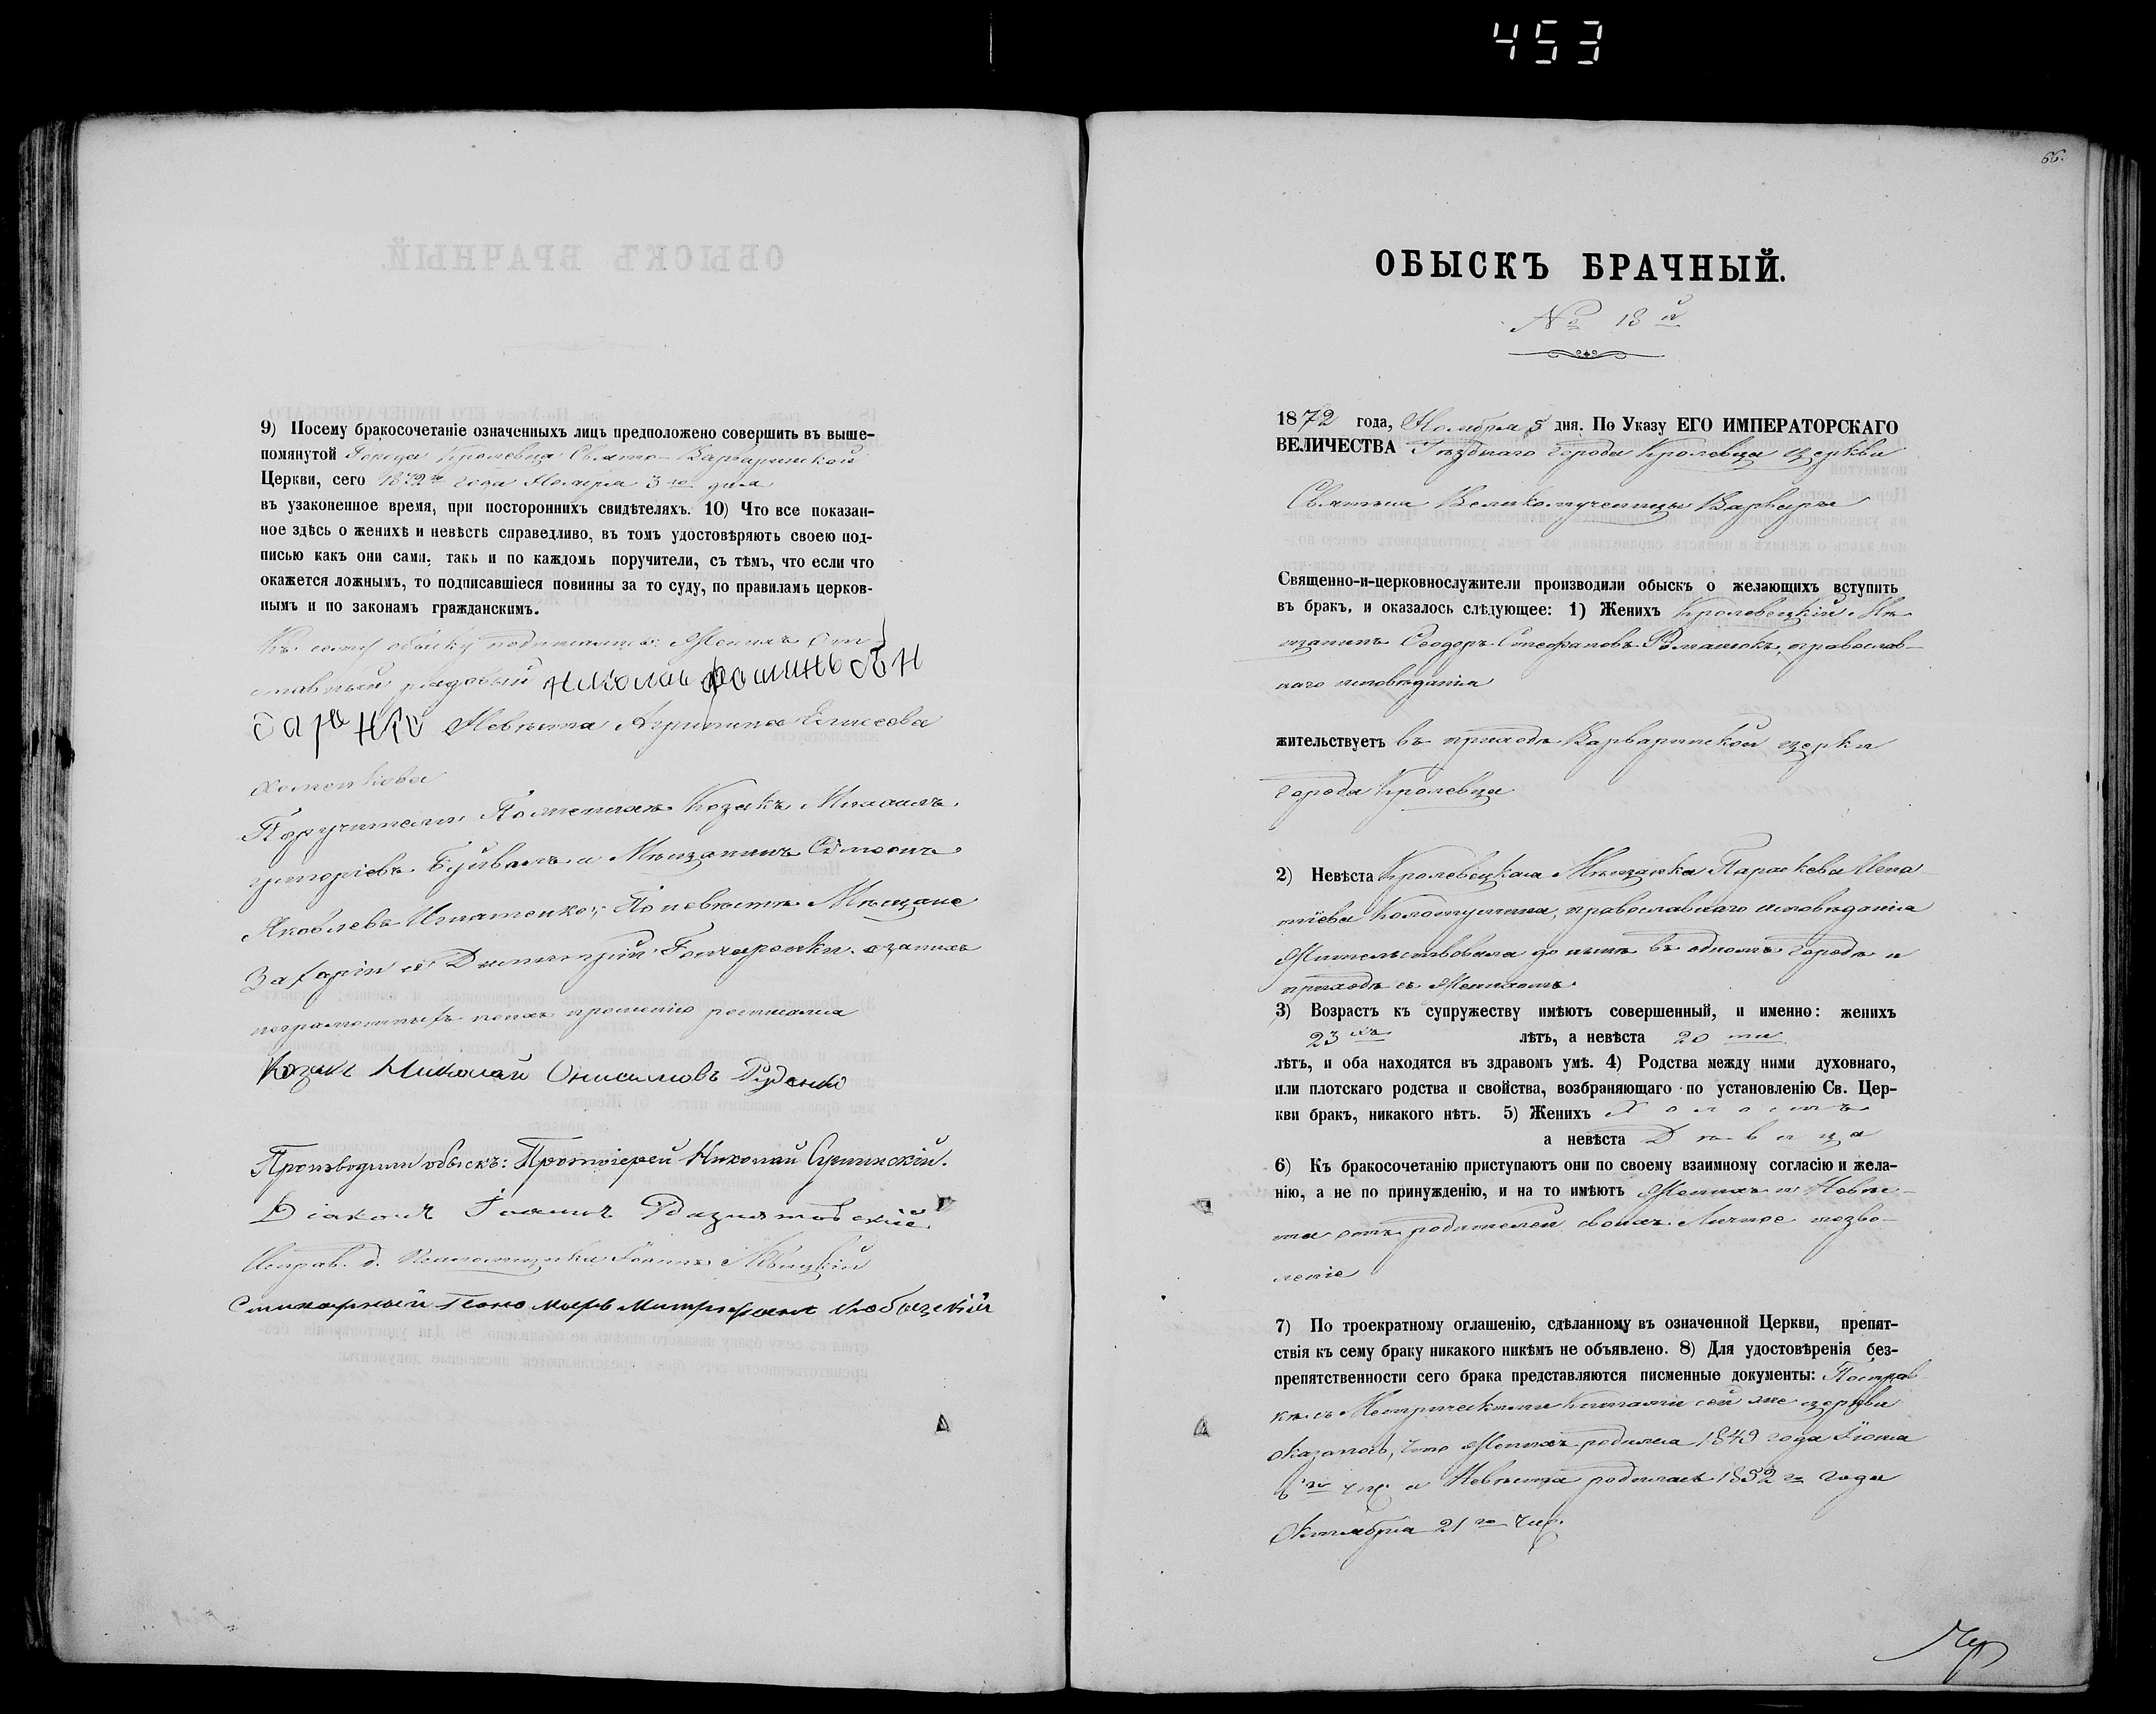 453
66.
9) Посему бракосочетаніе означенныхъ лицъ предположено совершить въ выше-
помянутой Города Кролевца Свято-Варваринской
Церкви, сего 1872го года Ноября 3го дня
въ узаконенное время, при постороннихъ свидѣтеляхъ. 10) Что все показан-
ное здѣсь о женихѣ и невѣстѣ справедливо, въ томъ удостовѣряютъ своею под-
писью какъ они сами, такъ и по каждомъ поручители, съ тѣмъ, что если что
окажется ложнымъ, то подписавшіеся повинны за то суду, по правиламъ церков-
нымъ и по законамъ гражданскимъ.
Къ сему обыску подписались: Женихъ От-
ставный рядовый Николай
Невѣста Агрипина Елисеева
Хоменкова
Поручители: По женихѣ Козакъ Михаилъ
Григоріевъ и Мѣщанинъ Симеонъ
Яковлевъ Игнатенко; По невѣстѣ Мѣщане
Захарій и Димитрій Гончаренки. а за нихъ
неграмотныхъ по ихъ прошенію росписался
Козакъ Николай Онисимовъ Руденко
Производили обыскъ: Протоіерей Николай
Діаконъ Іоаннъ
Исправ. д. Псаломщика Іоаннъ Львицкій
Стихарный Пономарь Митрофанъ
ОБЫСКЪ БРАЧНЫЙ.
№ 18й
1872 года, Ноября 5 дня. По Указу ЕГО ИМПЕРАТОРСКАГО
ВЕЛИЧЕСТВА Уѣзднаго города Кролевца церкви
Святыя Великомученицы Варвары
Священно-и-церковнослужители производили обыскъ о желающихъ вступить
въ бракъ, и оказалось слѣдующее: 1) Женихъ Кролевецкій Мѣ-
щанинъ Феодоръ Стефановъ Романюкъ, православ-
наго исповѣданія
жительствуетъ въ приходѣ Варваринской церкви
города Кролевца
2) Невѣста Кролевецкая Мѣщанка Параскева Ипа-
тіева Колотушина, православнаго исповѣданія
Жительствовала до нынѣ въ одномъ городѣ и
приходѣ съ женихомъ.
3) Возрастъ къ супружеству имѣютъ совершенный, и именно: женихъ
23хъ лѣтъ, а невѣста 20ти
лѣтъ, и оба находятся въ здравомъ умѣ. 4) Родства между ними духовнаго,
или плотскаго родства и свойства, возбраняющаго по установленію Св. Цер-
кви бракъ, никакого нѣтъ. 5) Женихъ Холостъ
а невѣста Дѣвица
6) Къ бракосочетанію приступаютъ они по своему взаимному согласію и жела-
нію, а не по принужденію, и на то имѣютъ Женихъ и Невѣс-
та отъ родителей своихъ Личное позво-
леніе
7) По троекратному оглашенію, сдѣланному въ означенной Церкви, препят-
ствія къ сему браку никакого никѣмъ не объявлено. 8) Для удостовѣренія без-
препятственности сего брака представляются писменные документы: По справ-
кѣ съ Метрическими Книгами сей же церкви
оказалось, что Женихъ родился 1849 года Іюня
6го чис. а Невѣста родилась 1852го года
Октября 21го чис.